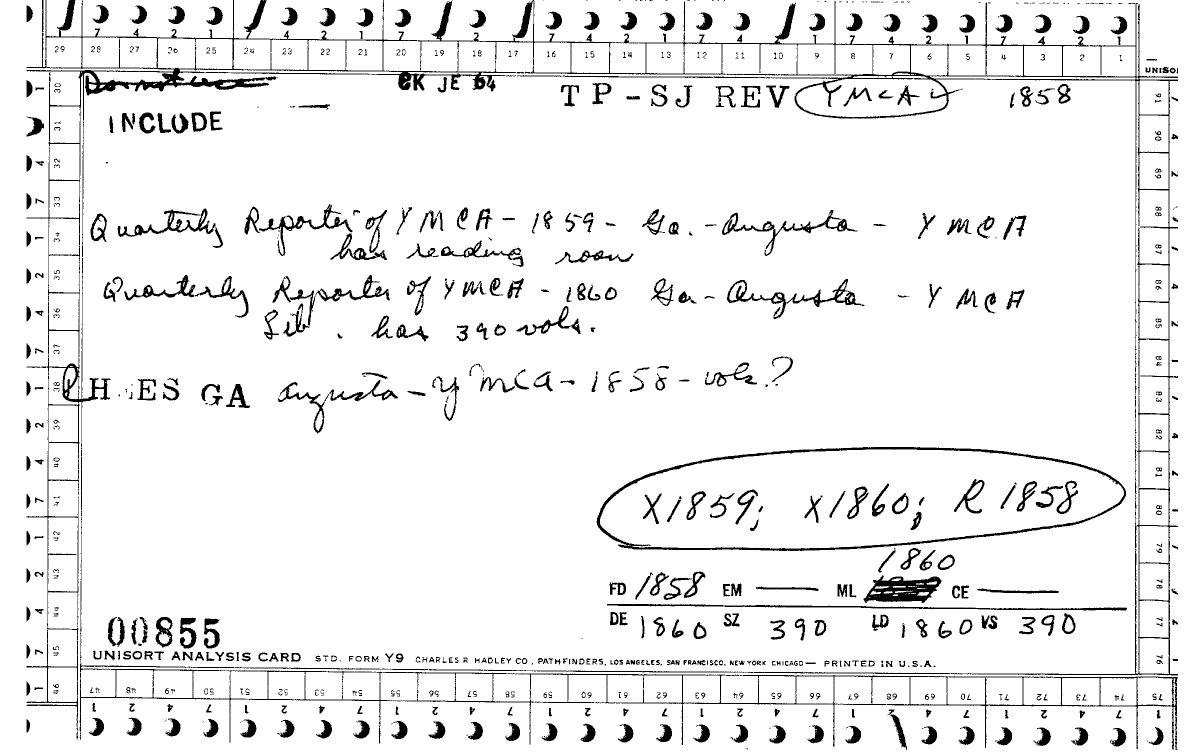 7 4 2 1 7 4 2 1 7 4 2 1 7 4 2 1 7 4 2 1 7 4 2 1 7 4 2 1
29 28 27 26 25 24 23 22 21 20 19 18 17 16 15 14 13 12 11 10 9 8 7 6 5 4 3 2 1
UNISOR
CK JE 64
TP-SJ REV YMCAL 1858
INCLUDE
Quarterly Reporter of YMCA - 1859 - Ga. - Augusta - YMCA
has reading room
Quarterly Reporter of YMCA - 1860 Ga - Augusta - YMCA
Lib. has 390 vols.
H ES GA Augusta - YMCA - 1858 - vols?
X1859; X1860; R 1858
1860
FD 1858 EM — ML CE —
DE 1860 SZ 390 LD 1860 VS 390
00855
UNISORT ANALYSIS CARD STD. FORM Y9 CHARLES R HADLEY CO., PATHFINDERS, LOS ANGELES, SAN FRANCISCO, NEW YORK CHICAGO — PRINTED IN U.S.A.
47 48 49 50 51 52 53 54 55 56 57 58 59 60 61 62 63 64 65 66 67 68 69 70 71 72 73 74 75